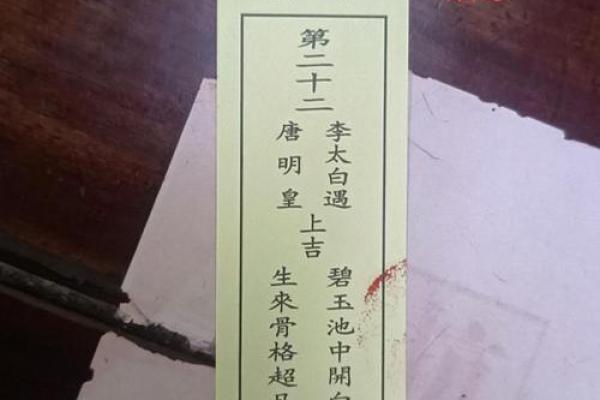 第二十二
李太白遇
唐明皇
上吉
碧玉池中開
生來骨格超